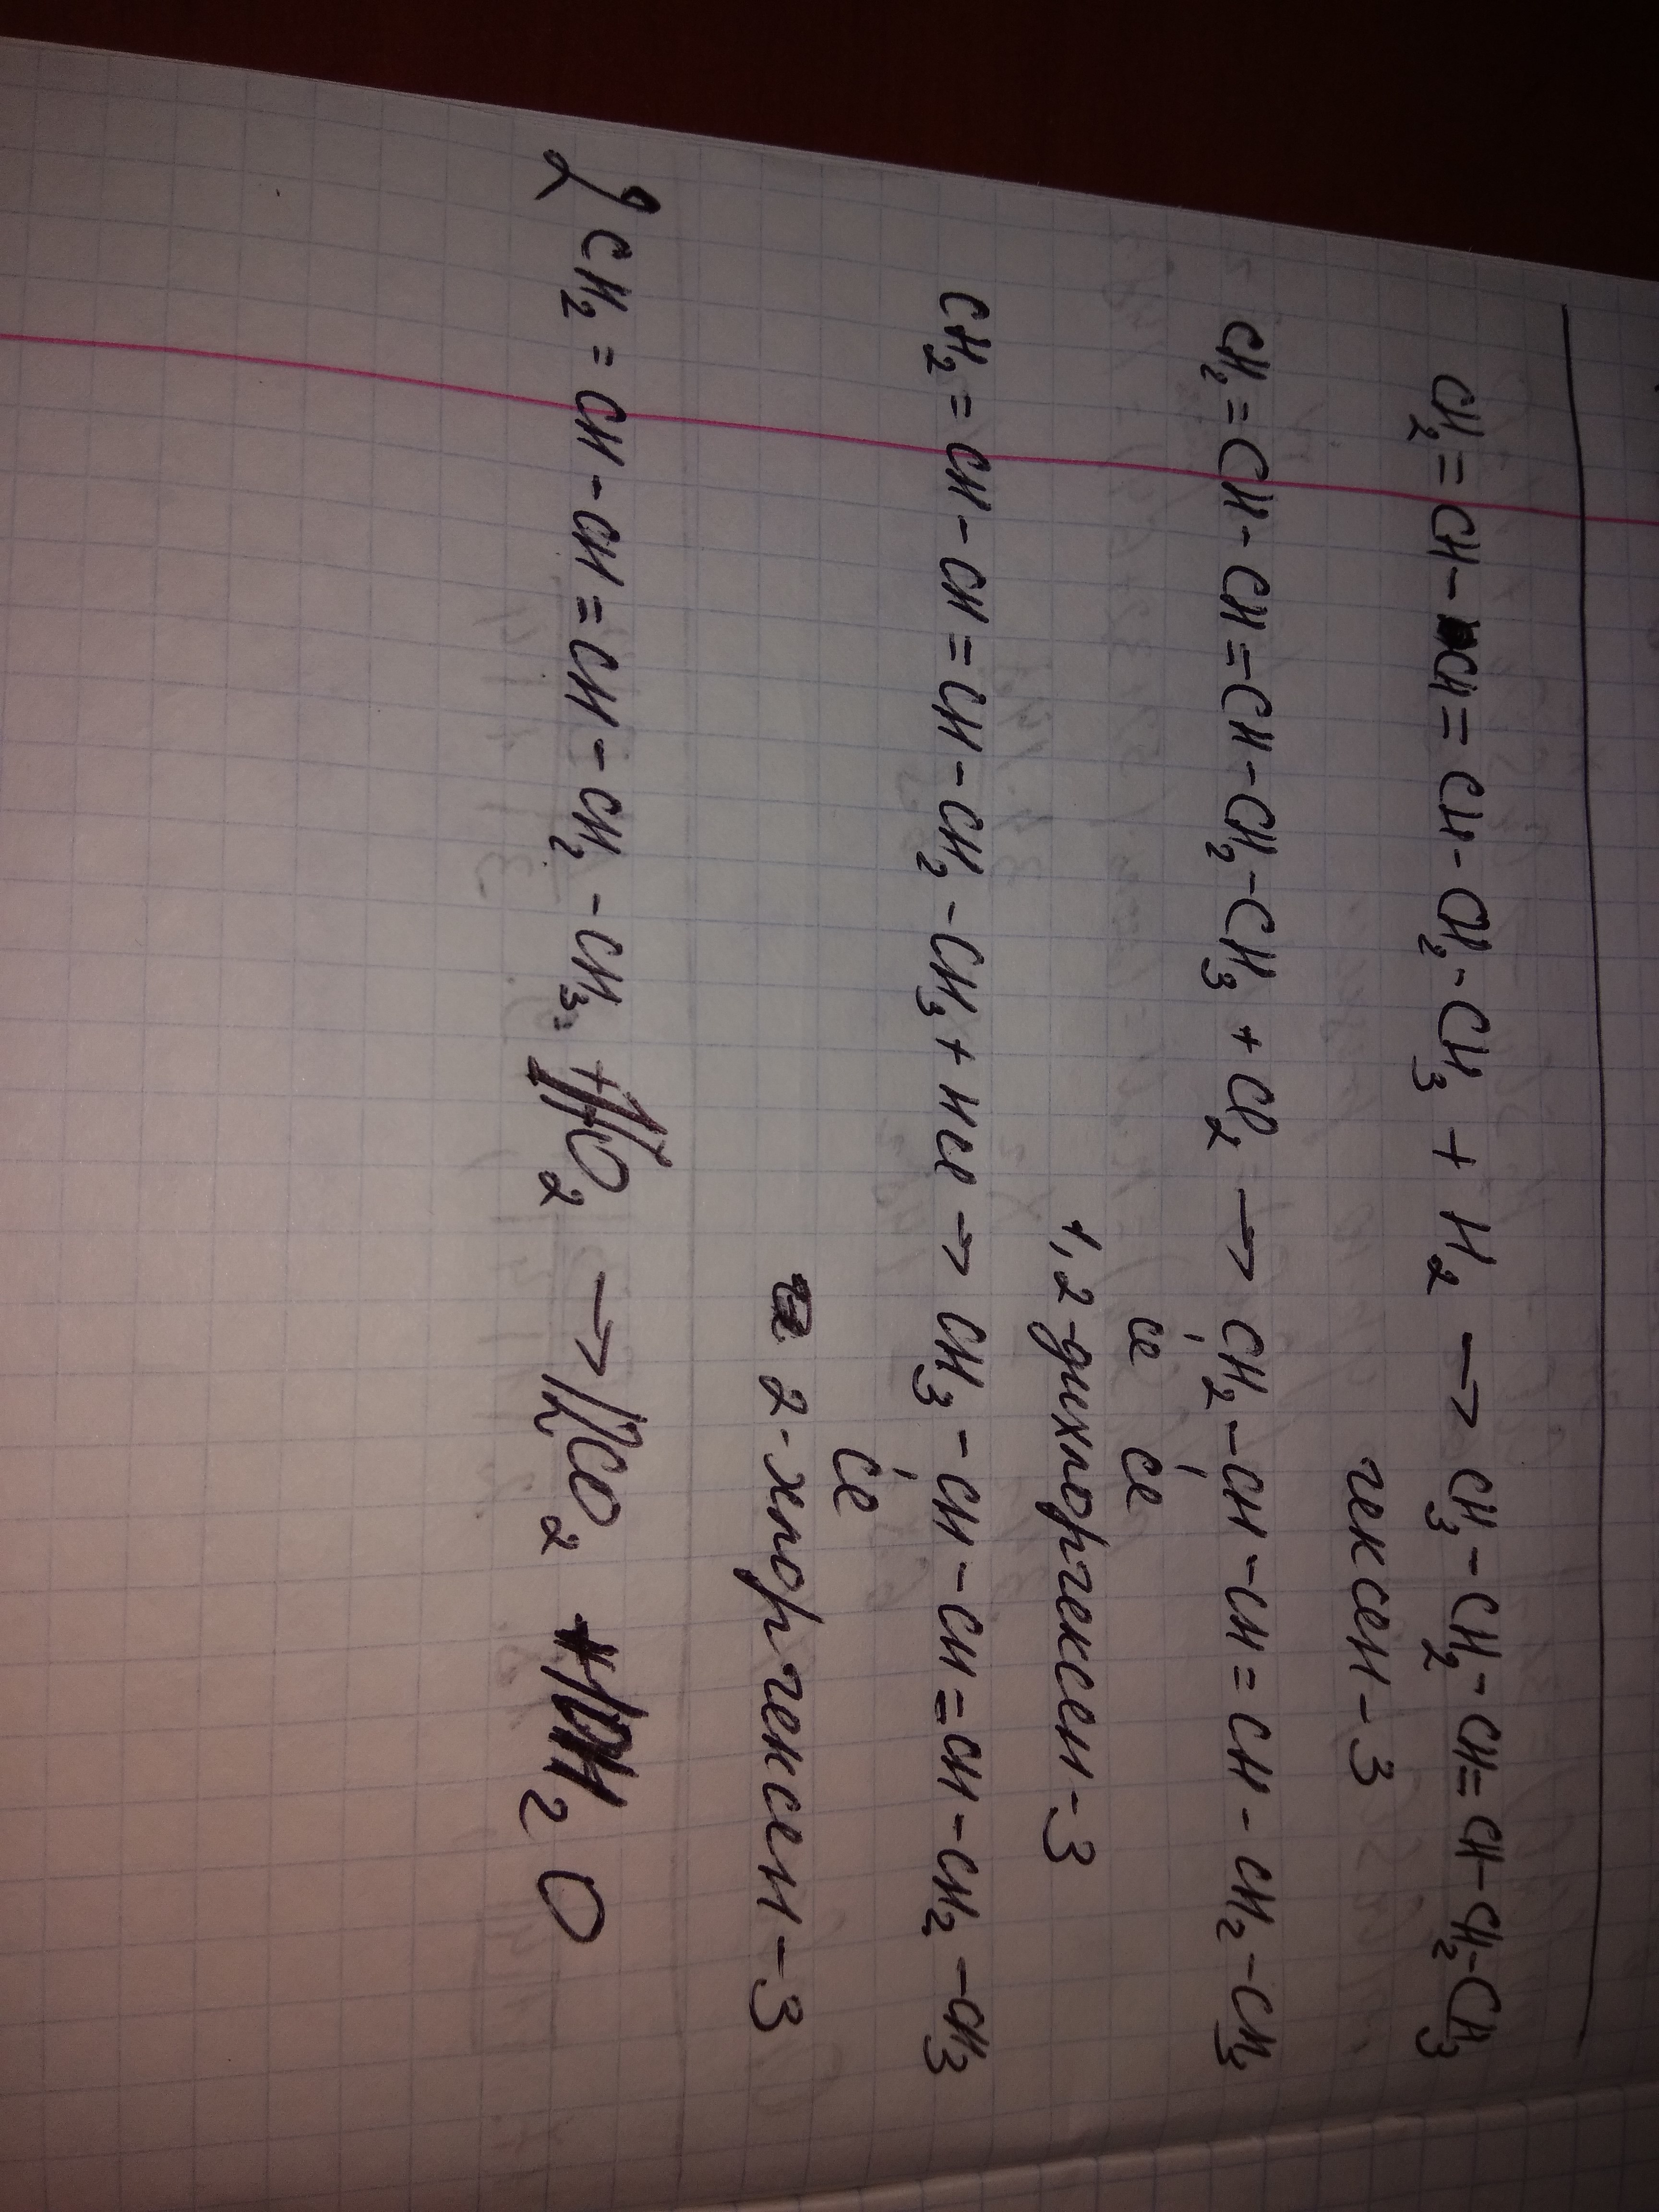 CH₂=CH-CH=CH-CH₂-CH₃ + H₂ → CH₃-CH₂-CH=CH-CH₂-CH₃
гексен-3
CH₂=CH-CH=CH-CH₂-CH₃ + Cl₂ → CH₂-CH-CH=CH-CH₂-CH₃
Cl Cl
1,2-дихлоргексен-3
CH₂=CH-CH=CH-CH₂-CH₃ + HCl → CH₃-CH-CH=CH-CH₂-CH₃
Cl
2-хлоргексен-3
2CH₂=CH-CH=CH-CH₂-CH₃ + 17O₂ → 12CO₂ + 10H₂O